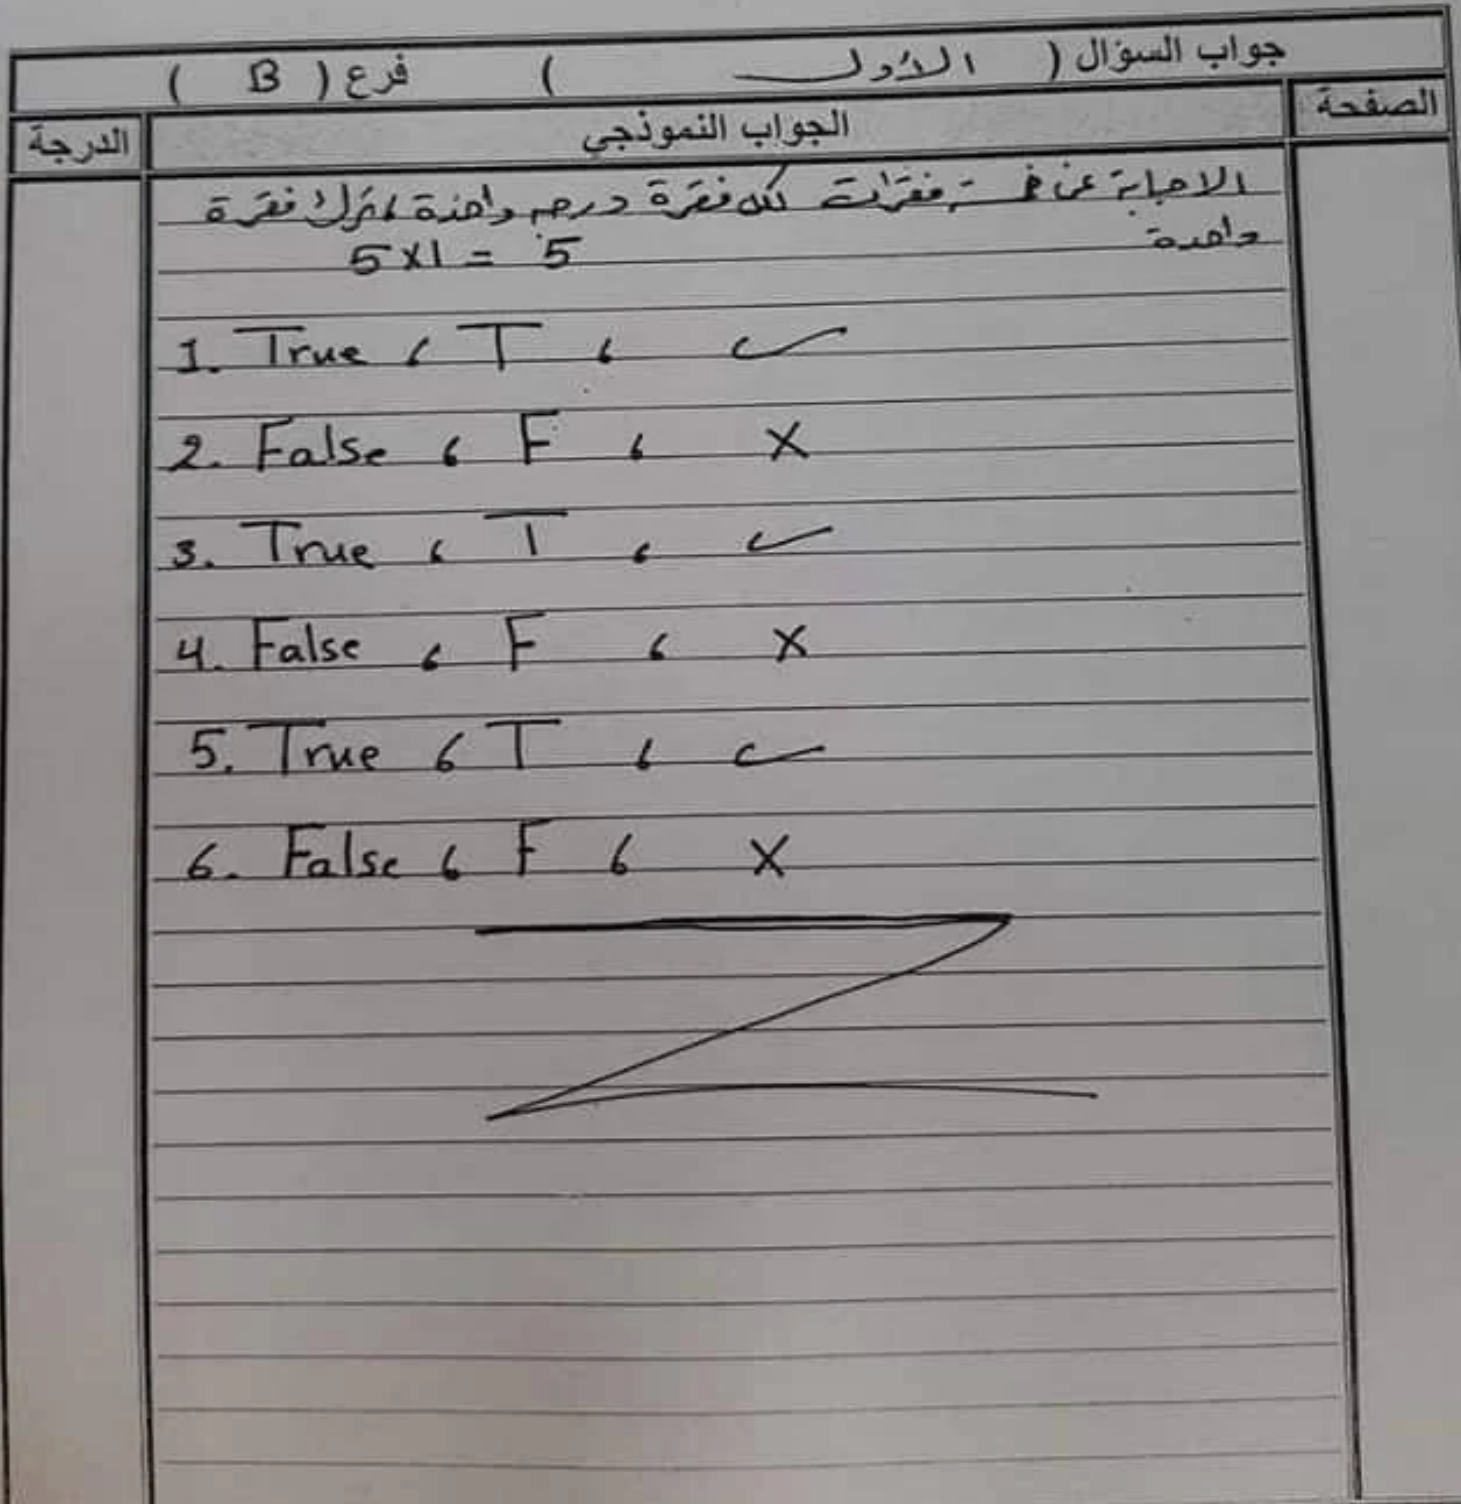 جواب السؤال ( الأول ) فرع ( B )
الصفحة
الجواب النموذجي
الدرجة
الاجابة عن خمسة فقرات لكل فقرة درجة واحدة ، تترك فقرة
واحدة
5×1 = 5
1. True ، T ، ✓
2. False ، F ، X
3. True ، T ، ✓
4. False ، F ، X
5. True ، T ، ✓
6. False ، F ، X